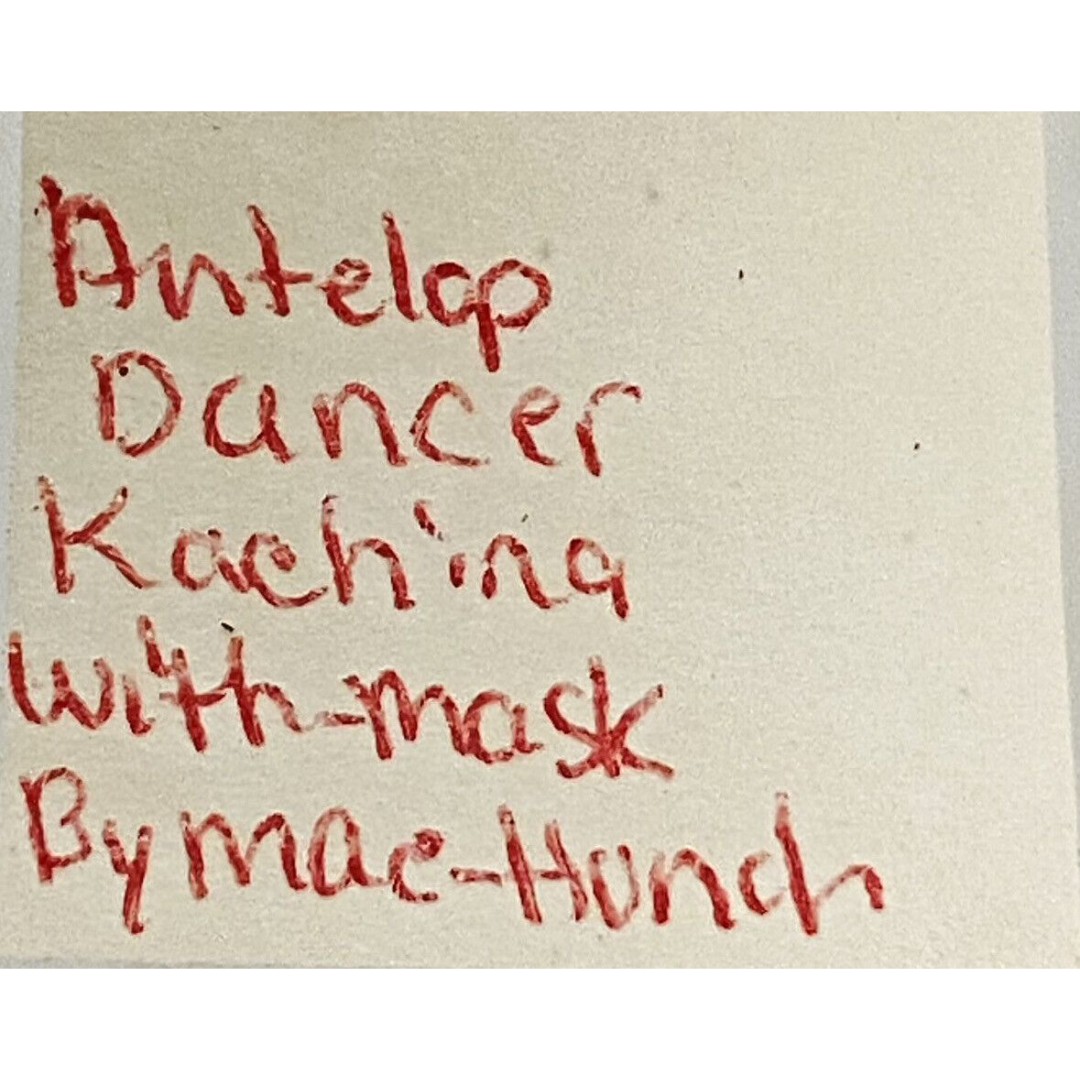 Antelop
Dancer
Kachina
with-mask
By mac-Hunch